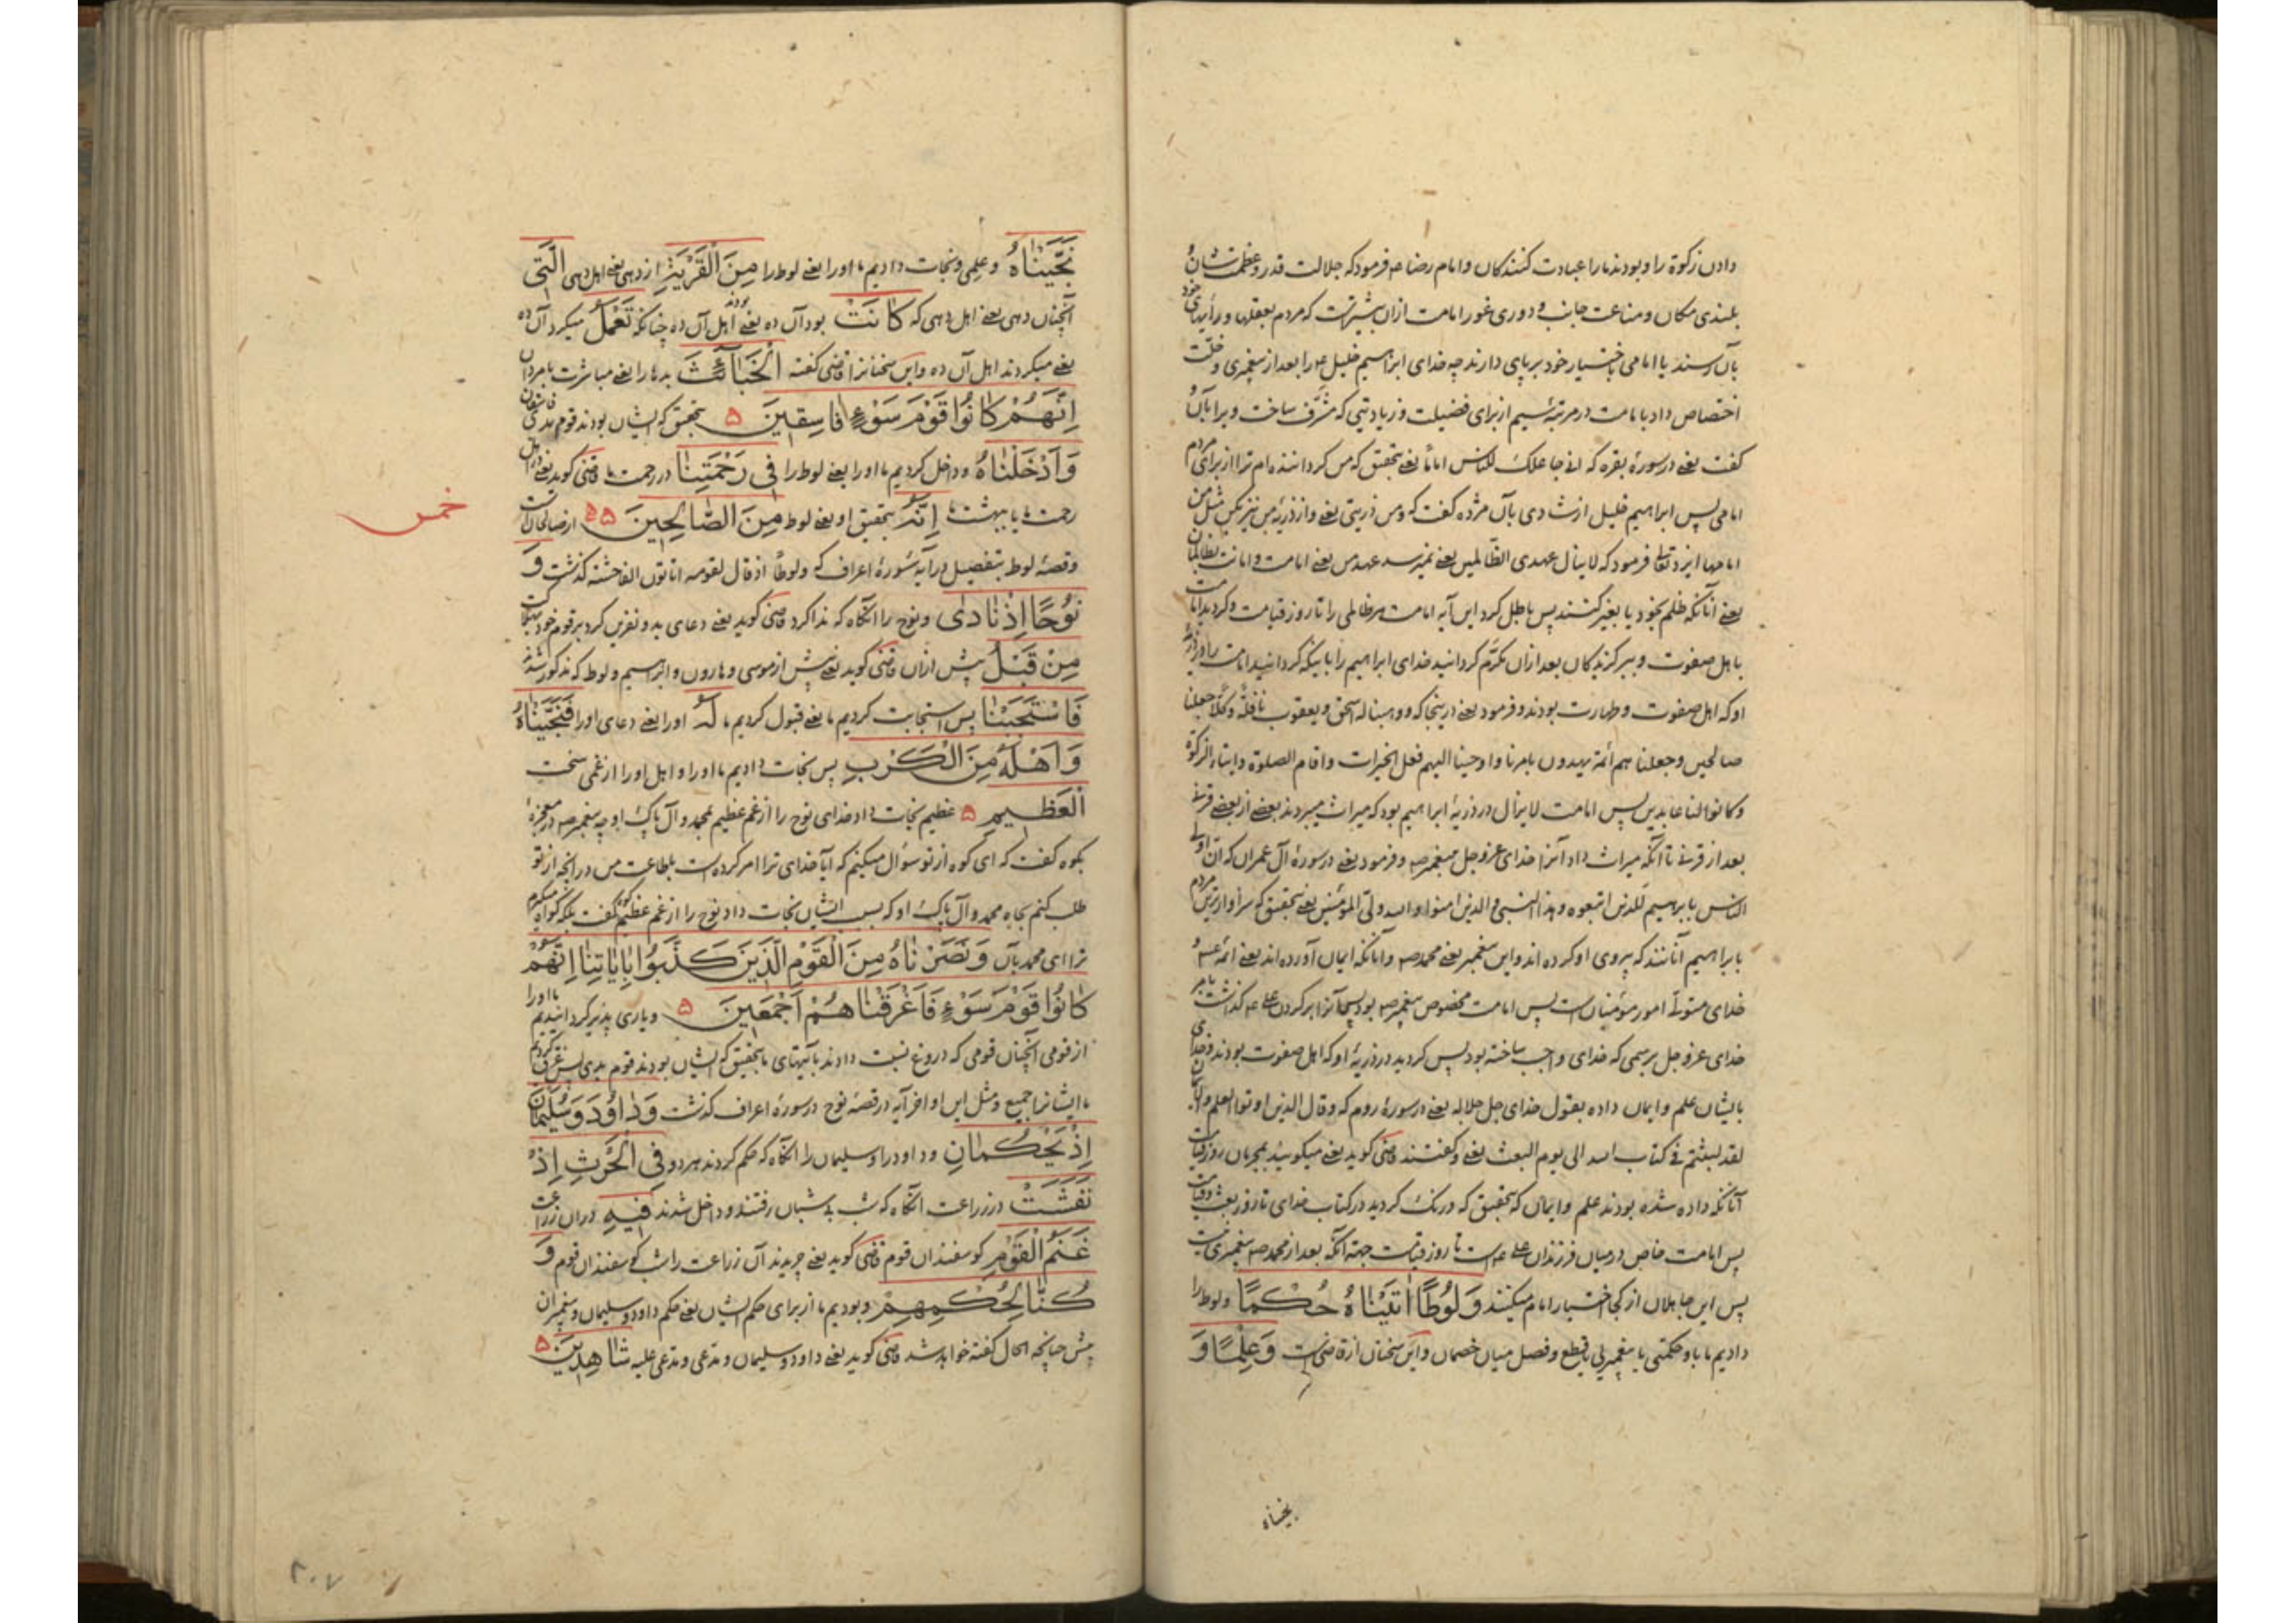 دادن زکوة را و بودند ما را عبادت کنندکان و امام رضا ع م فرمود که جلالت قدر و عظمت شان و
بلندی مکان و مناعت جانب و دوری غور امامت ازان بیشترست که مردم بعقلها و رأیهای خود
بآن رسند یا امامی باختیار خود برپای دارند چه خدای ابراهیم خلیل ع م را بعد از پیغمبری و خلّت
اختصاص داد بامامت در مرتبهٔ سیم از برای فضیلت و زیادتیی که مشرّف ساخت ویرا بآن و
کفت یعنے در سورهٔ بقره که انے جاعلک للناس اماماً یعنے بتحقیق که من کرداننده ام ترا از برای مردم
امامی پس ابراهیم خلیل از شادی بآن مژده کفت که و من ذریتی یعنے و از ذریهٔ من نیز بکن مثل من
امامها ایزد تعالی فرمود که لا ینال عهدی الظّالمین یعنے نمیرسد عهد من یعنے امامت و امانت بظالمان
یعنے آنانکه ظلم بخود یا بغیر کنند پس باطل کرد این آیه امامت هر ظالمی را تا روز قیامت و کردید امامت
با اهل صفوت و ببر کزیدکان بعد ازان مکرّم کردانید خدای ابراهیم را باینکه کردانید امامت را در ذریّهٔ
او که اهل صفوت و طهارت بودند و فرمود یعنے درینجا که و وهبنا له اسحق و یعقوب نافلة و کلّا جعلنا
صالحین و جعلنا هم ائمة یهدون بامرنا و اوحینا الیهم فعل الخیرات و اقام الصلوة و ایتاء الزکوة
و کانوا لنا عابدین پس امامت لا یزال در ذریهٔ ابراهیم بود که میراث میبردند بعضے از بعضے قرنے
بعد از قرنے تا آنکه میراث داد آنرا خدای عزوجل پیغمبر ص م و فرمود یعنے در سورهٔ آل عمران که انّ اولی
الناس بابرهیم للذین اتبعوه و هذا النبی و الذین امنوا و الله ولیّ المؤمنین یعنے بتحقیق که سزاوارترین مردم
بابراهیم آنانند که پیروی او کرده اند و این پیغمبر یعنے محمد ص م و آنانکه ایمان آورده اند یعنے ائمه ع م و
خدای متولّے امور مؤمنانست پس امامت مخصوص پیغمبر ص م بود پس آنرا بر کردن علے ع م کذاشت بامر
خدای عزوجل برسمی که خدای واجب ساخته بود پس کردید در ذریهٔ او که اهل صفوت بودند و خدای
بایشان علم و ایمان داده بقول خدای جل جلاله یعنے در سورهٔ روم که و قال الذین اوتوا العلم و الایمان
لقد لبثتم فے کتاب الله الی یوم البعث یعنے و کفتند قاضی کوید یعنے میکویند بمجرمان روز قیامت
آنانکه داده شده بودند علم و ایمان که بتحقیق که درنک کردید در کتاب خدای تا روز بعث و قیامت
پس امامت خاص در میان فرزندان علے ع م است تا روز قیامت جهة آنکه بعد از محمد ص م پیغمبری نیست
پس این جاهلان از کجا اختیار امام میکنند وَلُوطًا اٰتَیْنَاهُ حُکْمًا و لوط را
دادیم ما باو حکمتی یا پیغمبریی یا قطع و فصل میان خصمان و این سخنان از قاضیست وَعِلْمًا وَ
نجیناه
نَجَّیْنَاهُ و علمی و نجات دادیم ما او را یعنے لوط را مِنَ الْقَرْیَةِ از دهی یعنے اهل دهی الَّتِی
آنچنان دهی یعنے اهل دهی که کَانَتْ بود آن ده یعنے اهل آن ده بودند چنانکه تَعْمَلُ میکرد آن ده
یعنے میکردند اهل آن ده و این سخنانرا قاضی کفته الْخَبَائِثَ بدها را یعنے مباشرت با مردان
اِنَّهُمْ کَانُوا قَوْمَ سَوْءٍ فَاسِقِینَ ۵ بتحقیق که ایشان بودند قوم بدی فاسقان
وَاَدْخَلْنَاهُ و داخل کردیم ما او را یعنے لوط را فِی رَحْمَتِنَا در رحمت ما قاضی کوید یعنے در اهل
رحمت ما یا بهشت ما اِنَّهُ بتحقیق او یعنے لوط مِنَ الصَّالِحِینَ ۵۵ از صالحانست
خمس
و قصهٔ لوط بتفصیل در آیهٔ سورهٔ اعراف که و لوطاً اذ قال لقومه اتاتون الفاحشة کذشت وَ
نُوحًا اِذْ نَادٰی و نوح را آنکاه که ندا کرد قاضی کوید یعنے دعای بد و نفرین کرد بر قوم خود بهلاکت
مِنْ قَبْلُ پیش ازان قاضی کوید یعنے پیش از موسی و هارون و ابراهیم و لوط که مذکور شدند
فَاسْتَجَبْنَا پس استجابت کردیم ما یعنے قبول کردیم ما لَهُ او را یعنے دعای او را فَنَجَّیْنَاهُ
وَاَهْلَهُ مِنَ الْکَرْبِ پس نجات دادیم ما او را و اهل او را از غمی سخت
الْعَظِیمِ ۵ عظیم نجات داد خدای نوح را از غم عظیم بمحمد و آل پاک او چه پیغمبر ص م در معجزهٔ
بکوه کفت که ای کوه از تو سؤال میکنم که آیا خدای ترا امر کرده است بطاعت من در آنچه از تو
طلب کنم بجاه محمد و آل پاک او که بسبب ایشان نجات داد نوح را از غم عظیم کوه کفت بلکه کواه میکیرم
ترا ای محمد بآن وَنَصَرْنَاهُ مِنَ الْقَوْمِ الَّذِینَ کَذَّبُوا بِاٰیَاتِنَا اِنَّهُمْ
کَانُوا قَوْمَ سَوْءٍ فَاَغْرَقْنَاهُمْ اَجْمَعِینَ ۵ و یاری پذیر کردانیدیم ما او را
از قومی آنچنان قومی که دروغ نسبت دادند بآیتهای ما بتحقیق که ایشان بودند قوم بدی پس غرق کردیم
ما ایشانرا جمیع و مثل این اواخر آیه در قصهٔ نوح در سورهٔ اعراف کذشت وَدَاوُدَ وَسُلَیْمَانَ
اِذْ یَحْکُمَانِ و داود را و سلیمان را آنکاه که حکم کردند هر دو فِی الْحَرْثِ اِذْ
نَفَشَتْ در زراعت آنکاه که شب بے شبان رفتند و داخل شدند فِیهِ دران زراعت
غَنَمُ الْقَوْمِ کوسفندان قوم قاضی کوید یعنے چریدند آن زراعت را شب کوسفندان قوم وَ
کُنَّا لِحُکْمِهِمْ و بودیم ما از برای حکم ایشان یعنے حکم داود و سلیمان و پیغمبران
پیش چنانچه الحال کفته خواهد شد قاضی کوید یعنے داود و سلیمان و مدّعی و مدّعی علیه شَاهِدِینَ ۵
۲۰۷